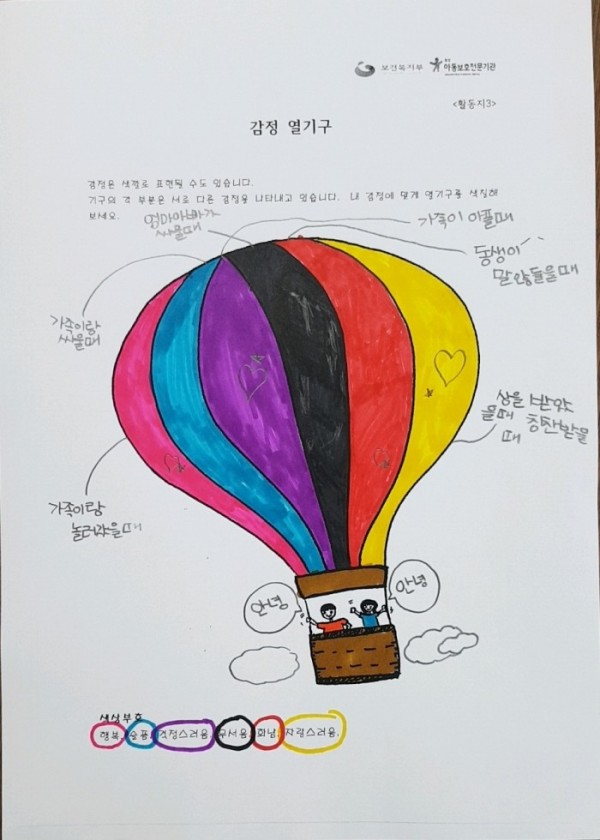 보건복지부 아동보호전문기관
<활동지3>
감정 열기구
감정은 색깔로 표현될 수도 있습니다.
기구의 각 부분은 서로 다른 감정을 나타내고 있습니다. 내 감정에 맞게 열기구를 색칠해
보세요.
엄마아빠가
싸울때
가족이 아플때
동생이
말 안들을때
가족이랑
싸울때
상을 받았
을때 칭찬받을
때
가족이랑
놀러갔을때
안녕
안녕
색상부호
행복, 슬픔, 걱정스러움, 무서움, 화남, 자랑스러움.